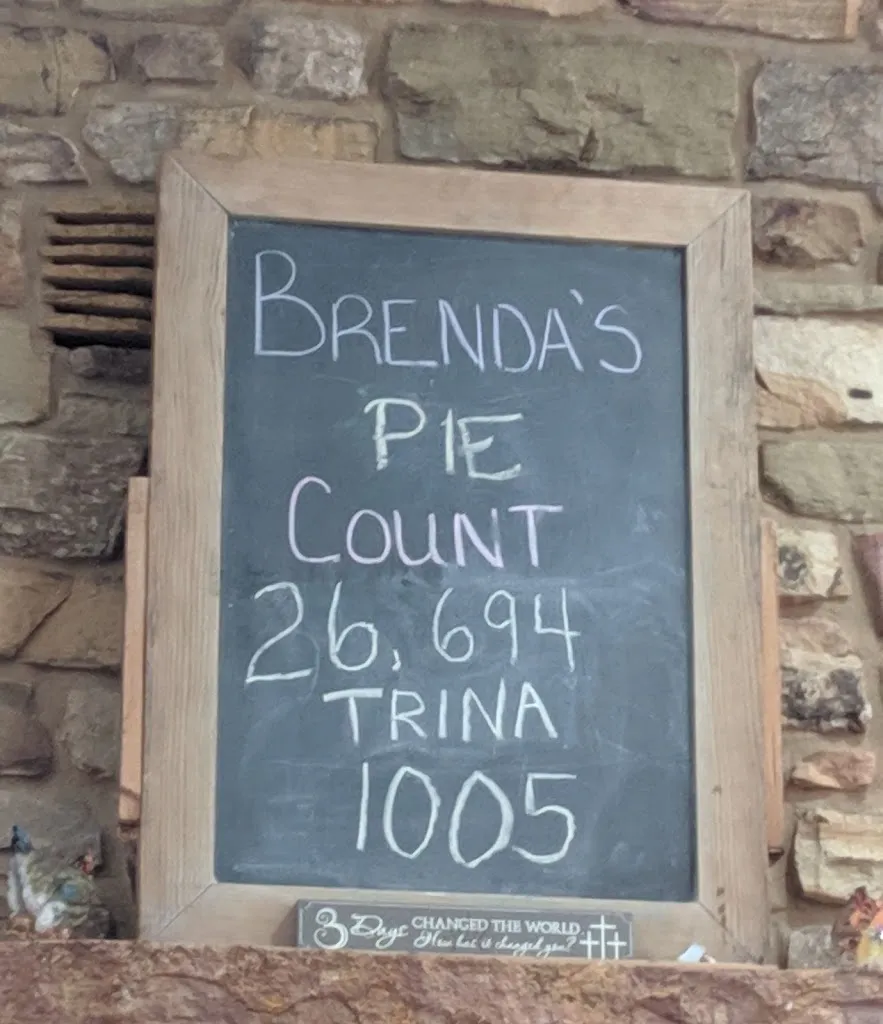 BRENDA'S
PIE
COUNT
26,694
TRINA
1005
3 Days CHANGED THE WORLD
How has it changed you?